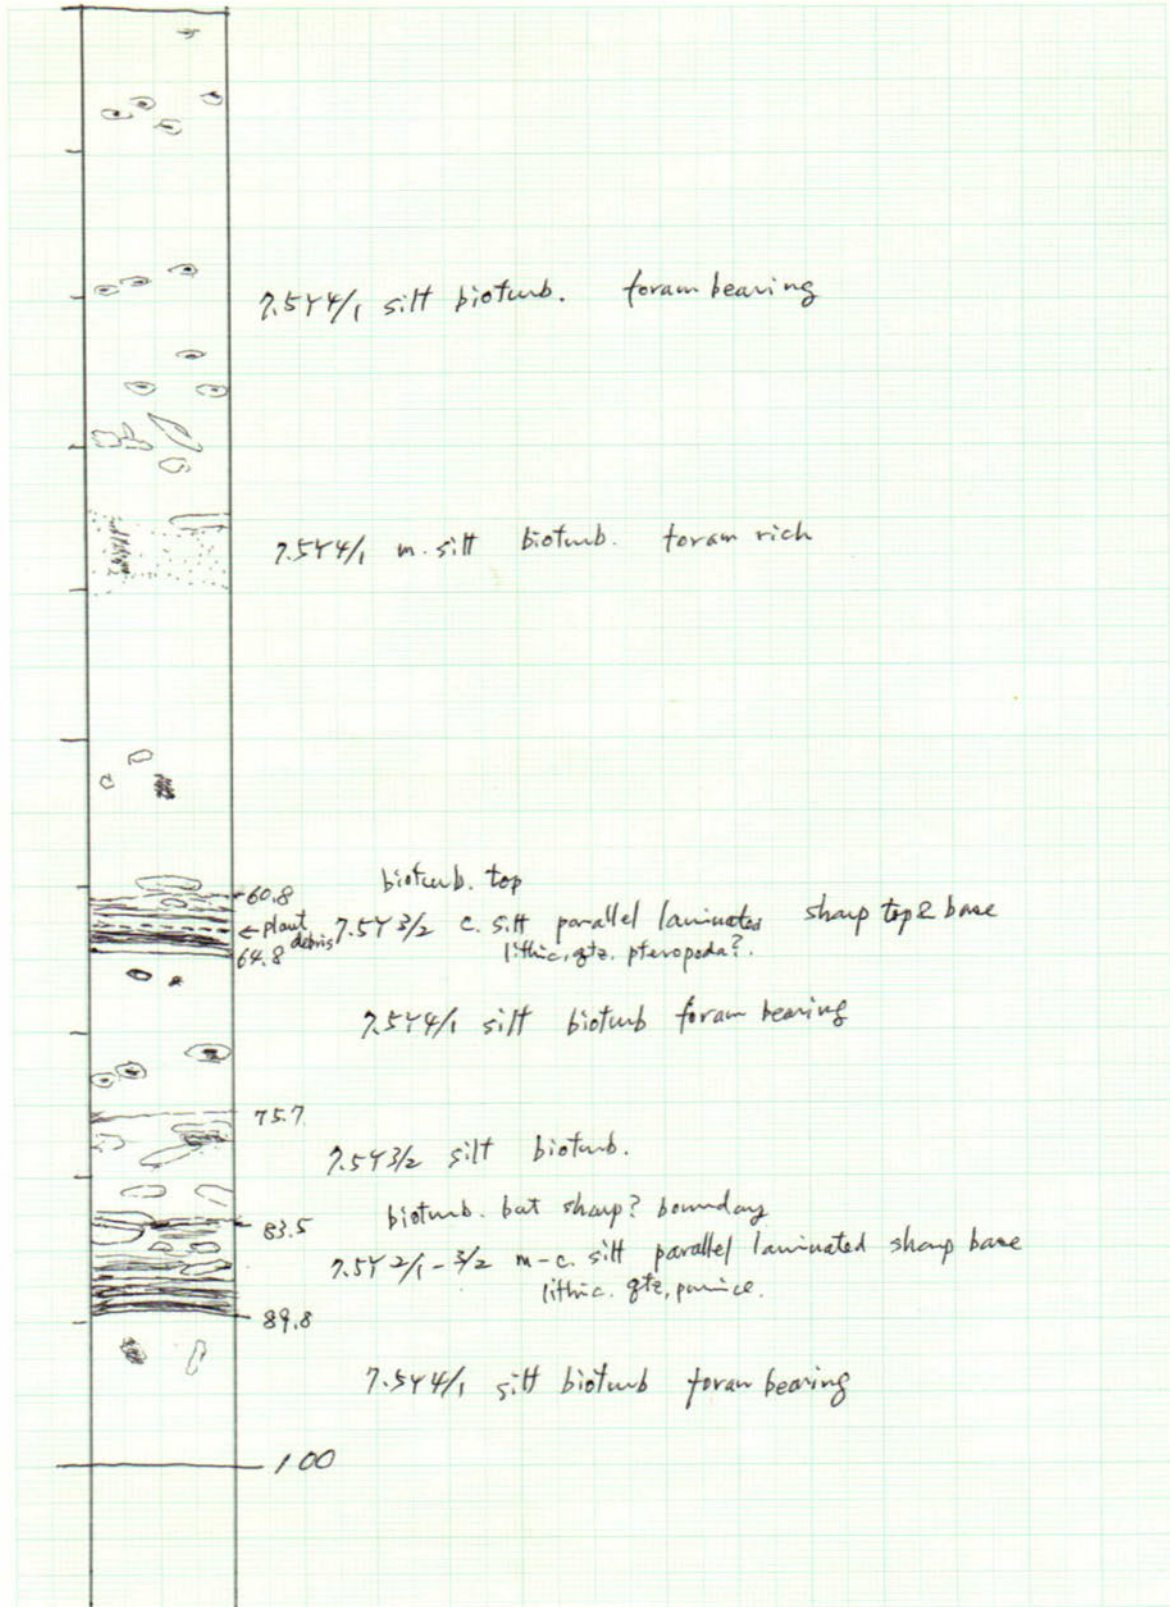 7.5Y4/1 silt bioturb. foram bearing
7.5Y4/1 m. silt bioturb. foram rich
60.8
bioturb. top
← plant debris
7.5Y 3/2 c. silt parallel laminated sharp top & base
lithic, qtz. pteropoda?.
64.8
7.5Y4/1 silt bioturb foram bearing
75.7
7.5Y3/2 silt bioturb.
bioturb. bat sharp? boundary
83.5
7.5Y 2/1 - 3/2 m-c. silt parallel laminated sharp base
lithic. qtz, pumice.
89.8
7.5Y4/1 silt bioturb foram bearing
100